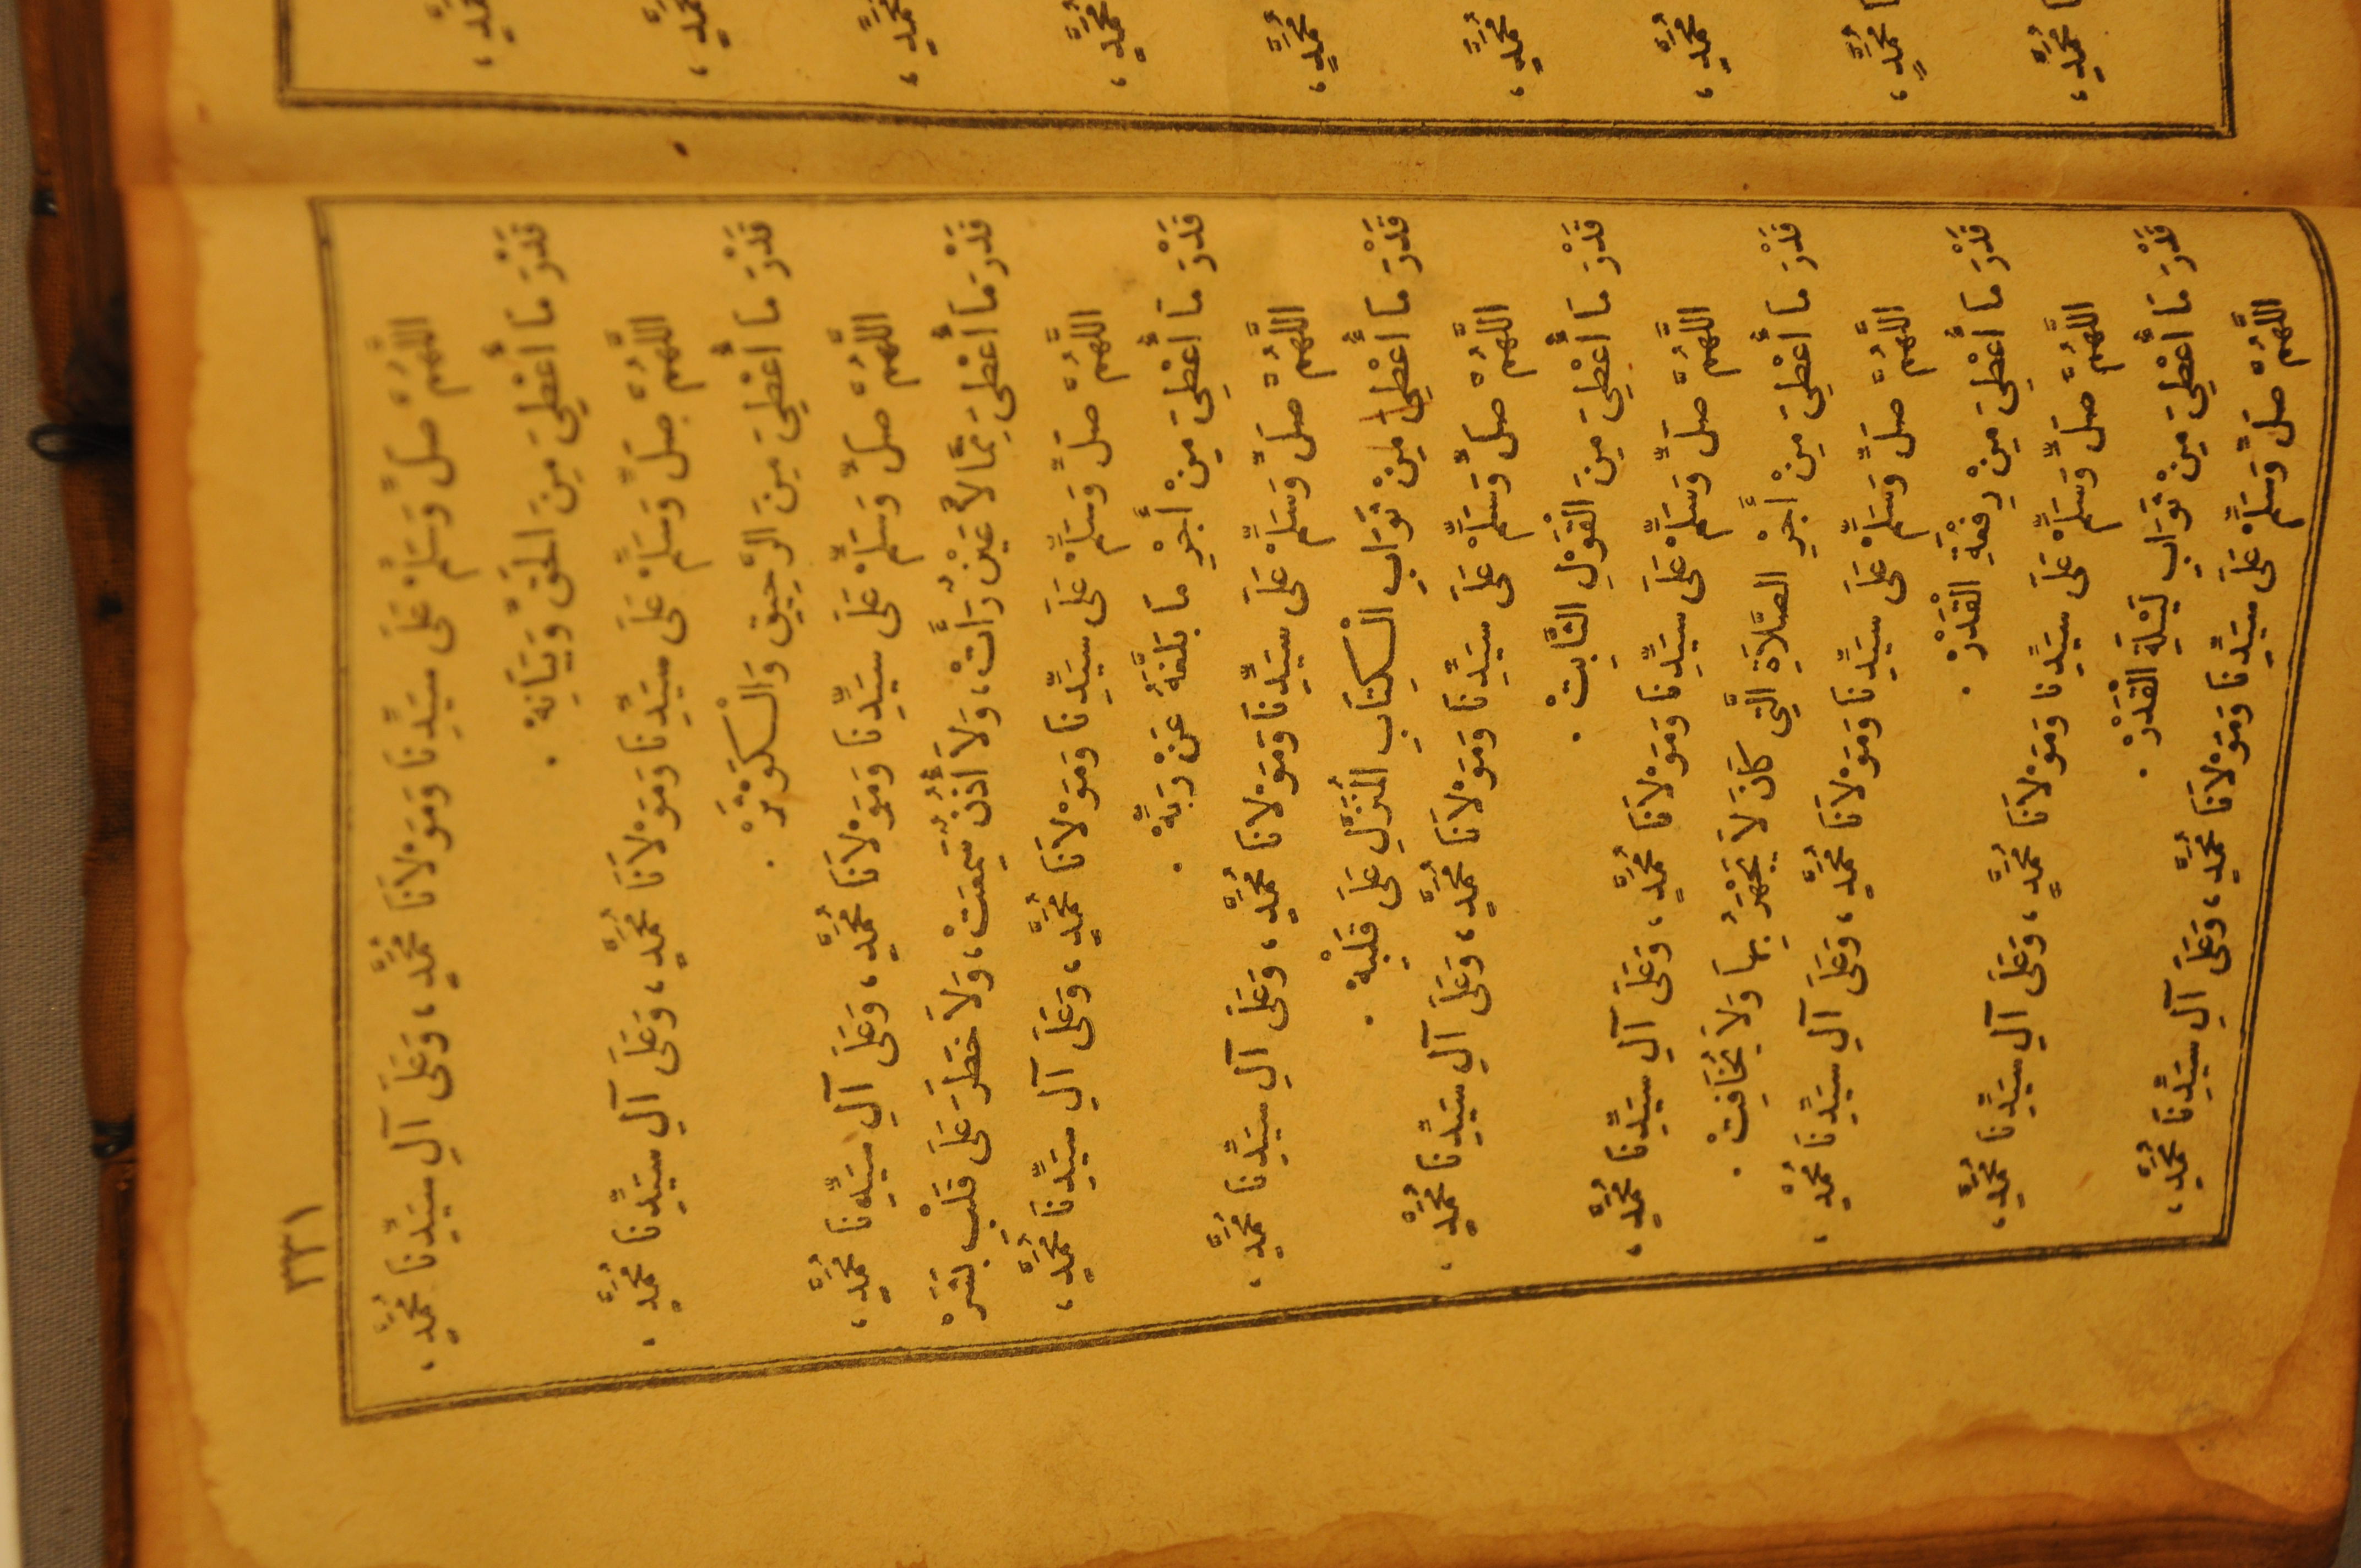 مُحَمَّدٍ،
مُحَمَّدٍ،
مُحَمَّدٍ،
مُحَمَّدٍ،
مُحَمَّدٍ،
مُحَمَّدٍ،
مُحَمَّدٍ،
مُحَمَّدٍ،
مُحَمَّدٍ،
٣٣١
اللَّهُمَّ صَلِّ وَسَلِّمْ عَلَى سَيِّدِنَا وَمَوْلَانَا مُحَمَّدٍ، وَعَلَى آلِ سَيِّدِنَا مُحَمَّدٍ،
قَدْرَ مَا أُعْطِيَ مِنَ الحَقِّ وَبَيَانِهْ .
اللَّهُمَّ صَلِّ وَسَلِّمْ عَلَى سَيِّدِنَا وَمَوْلَانَا مُحَمَّدٍ، وَعَلَى آلِ سَيِّدِنَا مُحَمَّدٍ،
قَدْرَ مَا أُعْطِيَ مِنَ الرَّحِيقِ وَالْكَوْثَرْ .
اللَّهُمَّ صَلِّ وَسَلِّمْ عَلَى سَيِّدِنَا وَمَوْلَانَا مُحَمَّدٍ، وَعَلَى آلِ سَيِّدِنَا مُحَمَّدٍ،
قَدْرَ مَا أُعْطِيَ مِمَّا لَا عَيْنٌ رَأَتْ، وَلَا أُذُنٌ سَمِعَتْ، وَلَا خَطَرَ عَلَى قَلْبِ بَشَرْ
اللَّهُمَّ صَلِّ وَسَلِّمْ عَلَى سَيِّدِنَا وَمَوْلَانَا مُحَمَّدٍ، وَعَلَى آلِ سَيِّدِنَا مُحَمَّدٍ،
قَدْرَ مَا أُعْطِيَ مِنْ أَجْرِ مَا بَلَّغَهُ عَنْ رَبِّهْ .
اللَّهُمَّ صَلِّ وَسَلِّمْ عَلَى سَيِّدِنَا وَمَوْلَانَا مُحَمَّدٍ، وَعَلَى آلِ سَيِّدِنَا مُحَمَّدٍ،
قَدْرَ مَا أُعْطِيَ مِنْ ثَوَابِ الْكِتَابِ المُنَزَّلِ عَلَى قَلْبِهْ .
اللَّهُمَّ صَلِّ وَسَلِّمْ عَلَى سَيِّدِنَا وَمَوْلَانَا مُحَمَّدٍ، وَعَلَى آلِ سَيِّدِنَا مُحَمَّدٍ،
قَدْرَ مَا أُعْطِيَ مِنَ الْقَوْلِ الثَّابِتْ .
اللَّهُمَّ صَلِّ وَسَلِّمْ عَلَى سَيِّدِنَا وَمَوْلَانَا مُحَمَّدٍ، وَعَلَى آلِ سَيِّدِنَا مُحَمَّدٍ،
قَدْرَ مَا أُعْطِيَ مِنْ أَجْرِ الصَّلَاةِ الَّتِي كَانَ لَا يَجْهَرُ بِهَا وَلَا يُخَافِتْ .
اللَّهُمَّ صَلِّ وَسَلِّمْ عَلَى سَيِّدِنَا وَمَوْلَانَا مُحَمَّدٍ، وَعَلَى آلِ سَيِّدِنَا مُحَمَّدٍ،
قَدْرَ مَا أُعْطِيَ مِنْ رِفْعَةِ الْقَدْرْ .
اللَّهُمَّ صَلِّ وَسَلِّمْ عَلَى سَيِّدِنَا وَمَوْلَانَا مُحَمَّدٍ، وَعَلَى آلِ سَيِّدِنَا مُحَمَّدٍ،
قَدْرَ مَا أُعْطِيَ مِنْ ثَوَابِ لَيْلَةِ الْقَدْرْ .
اللَّهُمَّ صَلِّ وَسَلِّمْ عَلَى سَيِّدِنَا وَمَوْلَانَا مُحَمَّدٍ، وَعَلَى آلِ سَيِّدِنَا مُحَمَّدٍ،